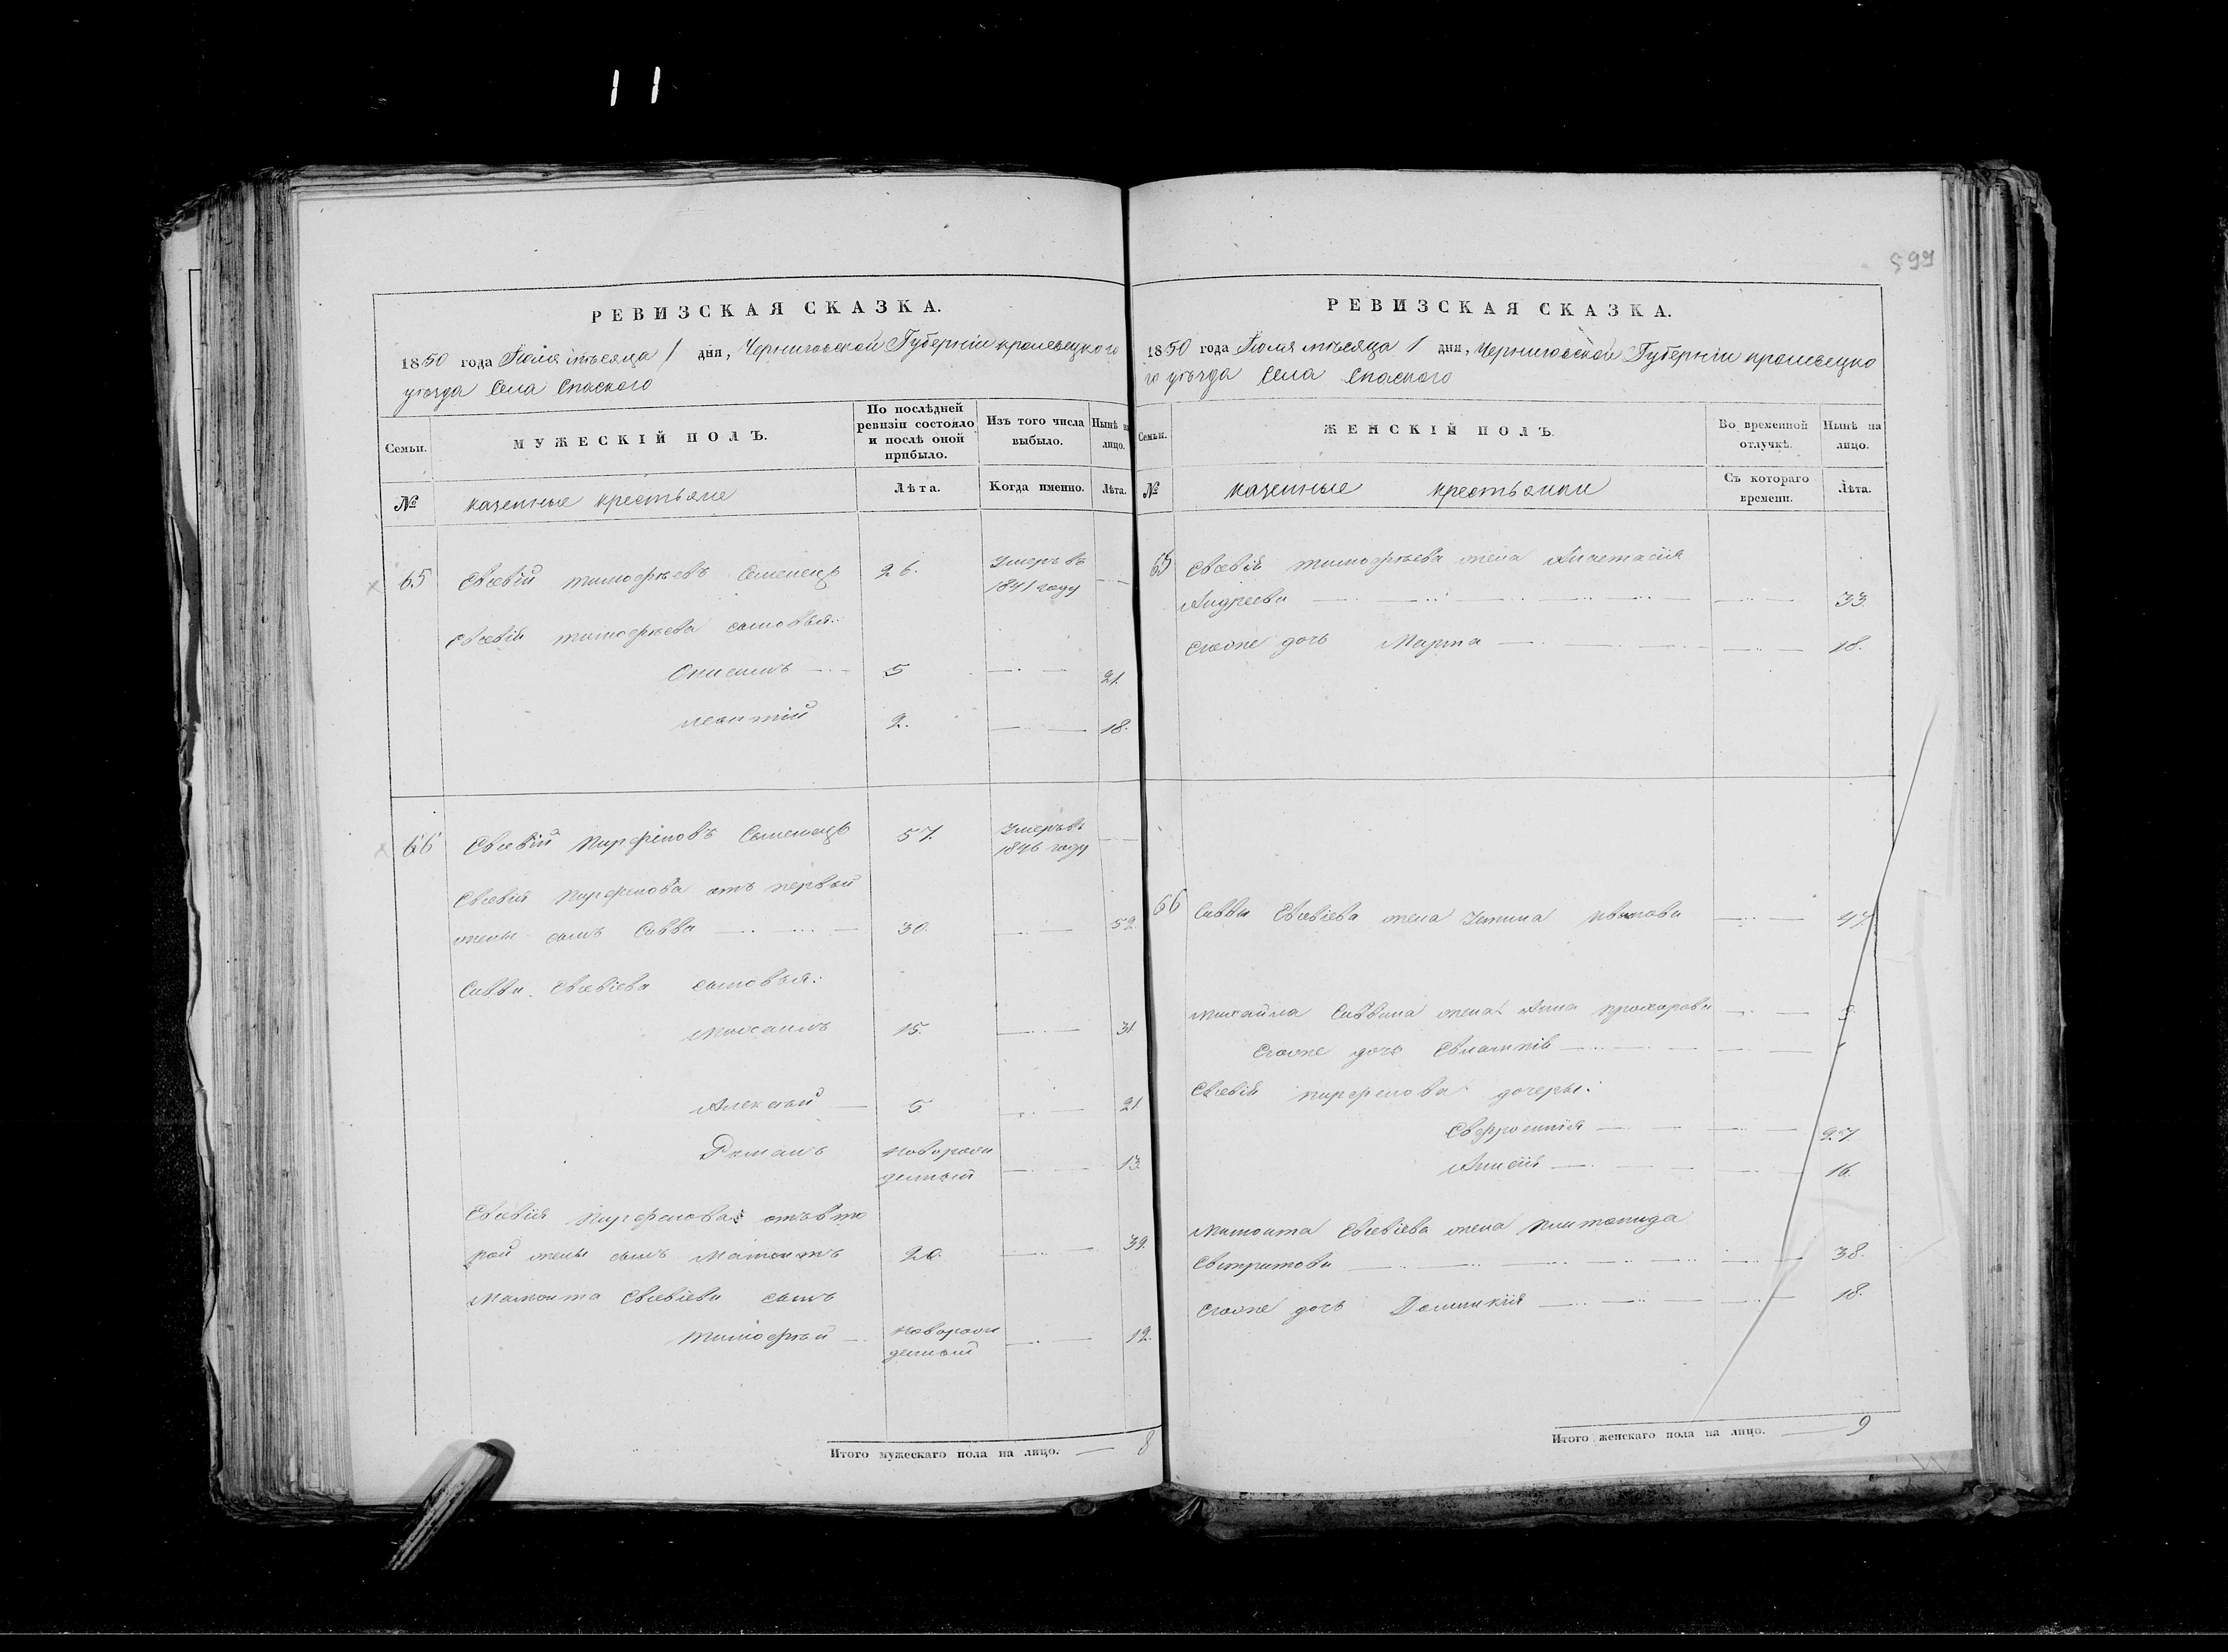 11
599
РЕВИЗСКАЯ СКАЗКА.
1850 года Іюля мѣсяца 1 дня, Черниговской Губерніи кролевецкого
уѣзда Села Спаского
Семьи.
МУЖЕСКІЙ ПОЛЪ.
По послѣдней ревизіи состояло и послѣ оной прибыло.
Изъ того числа выбыло.
Нынѣ на лицо.
№
казенные крестьяне
Лѣта.
Когда именно.
Лѣта.
65 Евсевій тимофѣевъ Семенецъ 26. Умеръ въ
1841 году
Евсевія тимофѣева сыновья:
Онисимъ 5 21.
леонтій 2. 18.
66 Евсевій Парфеновъ Семенецъ 57. Умеръ въ
1846 году
Евсевія Парфенова отъ первой
жены сынъ Савва 30. 52.
Саввы Евсевіева сыновья:
Михаилъ 15. 31
Алексѣй 5 21
Романъ Новорож
денный 13.
Евсевія Парфенова отъ вто
рой жены сынъ Мамонтъ 20. 39.
Мамонта Евсевіева сынъ
Тимофѣй Новорож
денный 12.
Итого мужескаго пола на лицо. 8
РЕВИЗСКАЯ СКАЗКА.
1850 года Іюля мѣсяца 1 дня, Черниговской Губерніи кролевецко
го уѣзда Села Спаского
Семьи.
ЖЕНСКІЙ ПОЛЪ.
Во временной отлучкѣ.
Нынѣ на лицо.
№
казенные крестьянки
Съ котораго времени.
Лѣта.
65 Евсевія тимофѣева жена Анастасія
Андреева 33.
Егоже дочь Марта 18.
66 Саввы Евсевіева жена Устина 47.
Михайла Саввина жена Анна прохорова
Егоже дочь Евлампія
Евсевія парфенова дочери:
Евфросинія 27.
Анисія 16.
Мамонта Евсевіева жена
Евстратова 38.
Егоже дочь Домникія 18.
Итого женскаго пола на лицо. 9